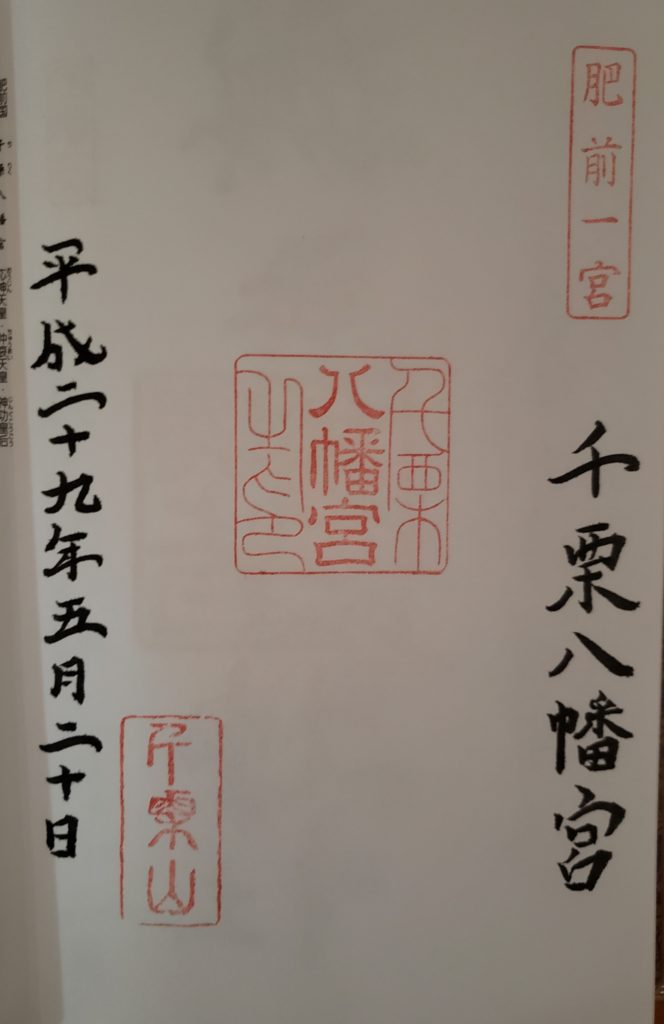 肥前一宮
千栗八幡宮
千栗
八幡宮
之印
千栗山
平成二十九年五月二十日
肥前国 千栗八幡宮 応神天皇・仲哀天皇・神功皇后